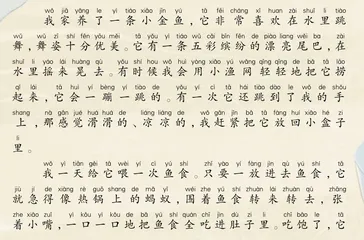 wǒ jiā yǎng le yì tiáo xiǎo jīn yú tā fēi cháng xǐ huan zài shuǐ lǐ tiào
我家养了一条小金鱼，它非常喜欢在水里跳
wǔ wǔ zī shí fēn yōu měi tā yǒu yì tiáo wǔ cǎi bīn fēn de piào liang wěi ba zài
舞，舞姿十分优美。它有一条五彩缤纷的漂亮尾巴，在
shuǐ lǐ yáo lái huàng qù yǒu shí hou wǒ huì yòng xiǎo yú wǎng qīng qīng de bǎ tā lāo
水里摇来晃去。有时候我会用小渔网轻轻地把它捞
qǐ lái tā huì yí bèng yí tiào de yǒu yí cì tā hái tiào dào le wǒ de shǒu
起来，它会一蹦一跳的。有一次它还跳到了我的手
shang nà gǎn jué huá huá de liáng liáng de wǒ gǎn jǐn bǎ tā fàng huí xiǎo hé zi
上，那感觉滑滑的、凉凉的，我赶紧把它放回小盒子
lǐ
里。
wǒ yì tiān gěi tā wèi yí cì yú shí zhǐ yào yí fàng jìn qù yú shí tā
我一天给它喂一次鱼食。只要一放进去鱼食，它
jiù jí de xiàng rè guō shang de mǎ yǐ wéi zhe yú shí zhuàn lái zhuàn qù zhāng
就急得像热锅上的蚂蚁，围着鱼食转来转去，张
zhe xiǎo zuǐ yì kǒu yì kǒu de bǎ yú shí quán chī jìn dù zi lǐ chī bǎo le tā
着小嘴，一口一口地把鱼食全吃进肚子里。吃饱了，它